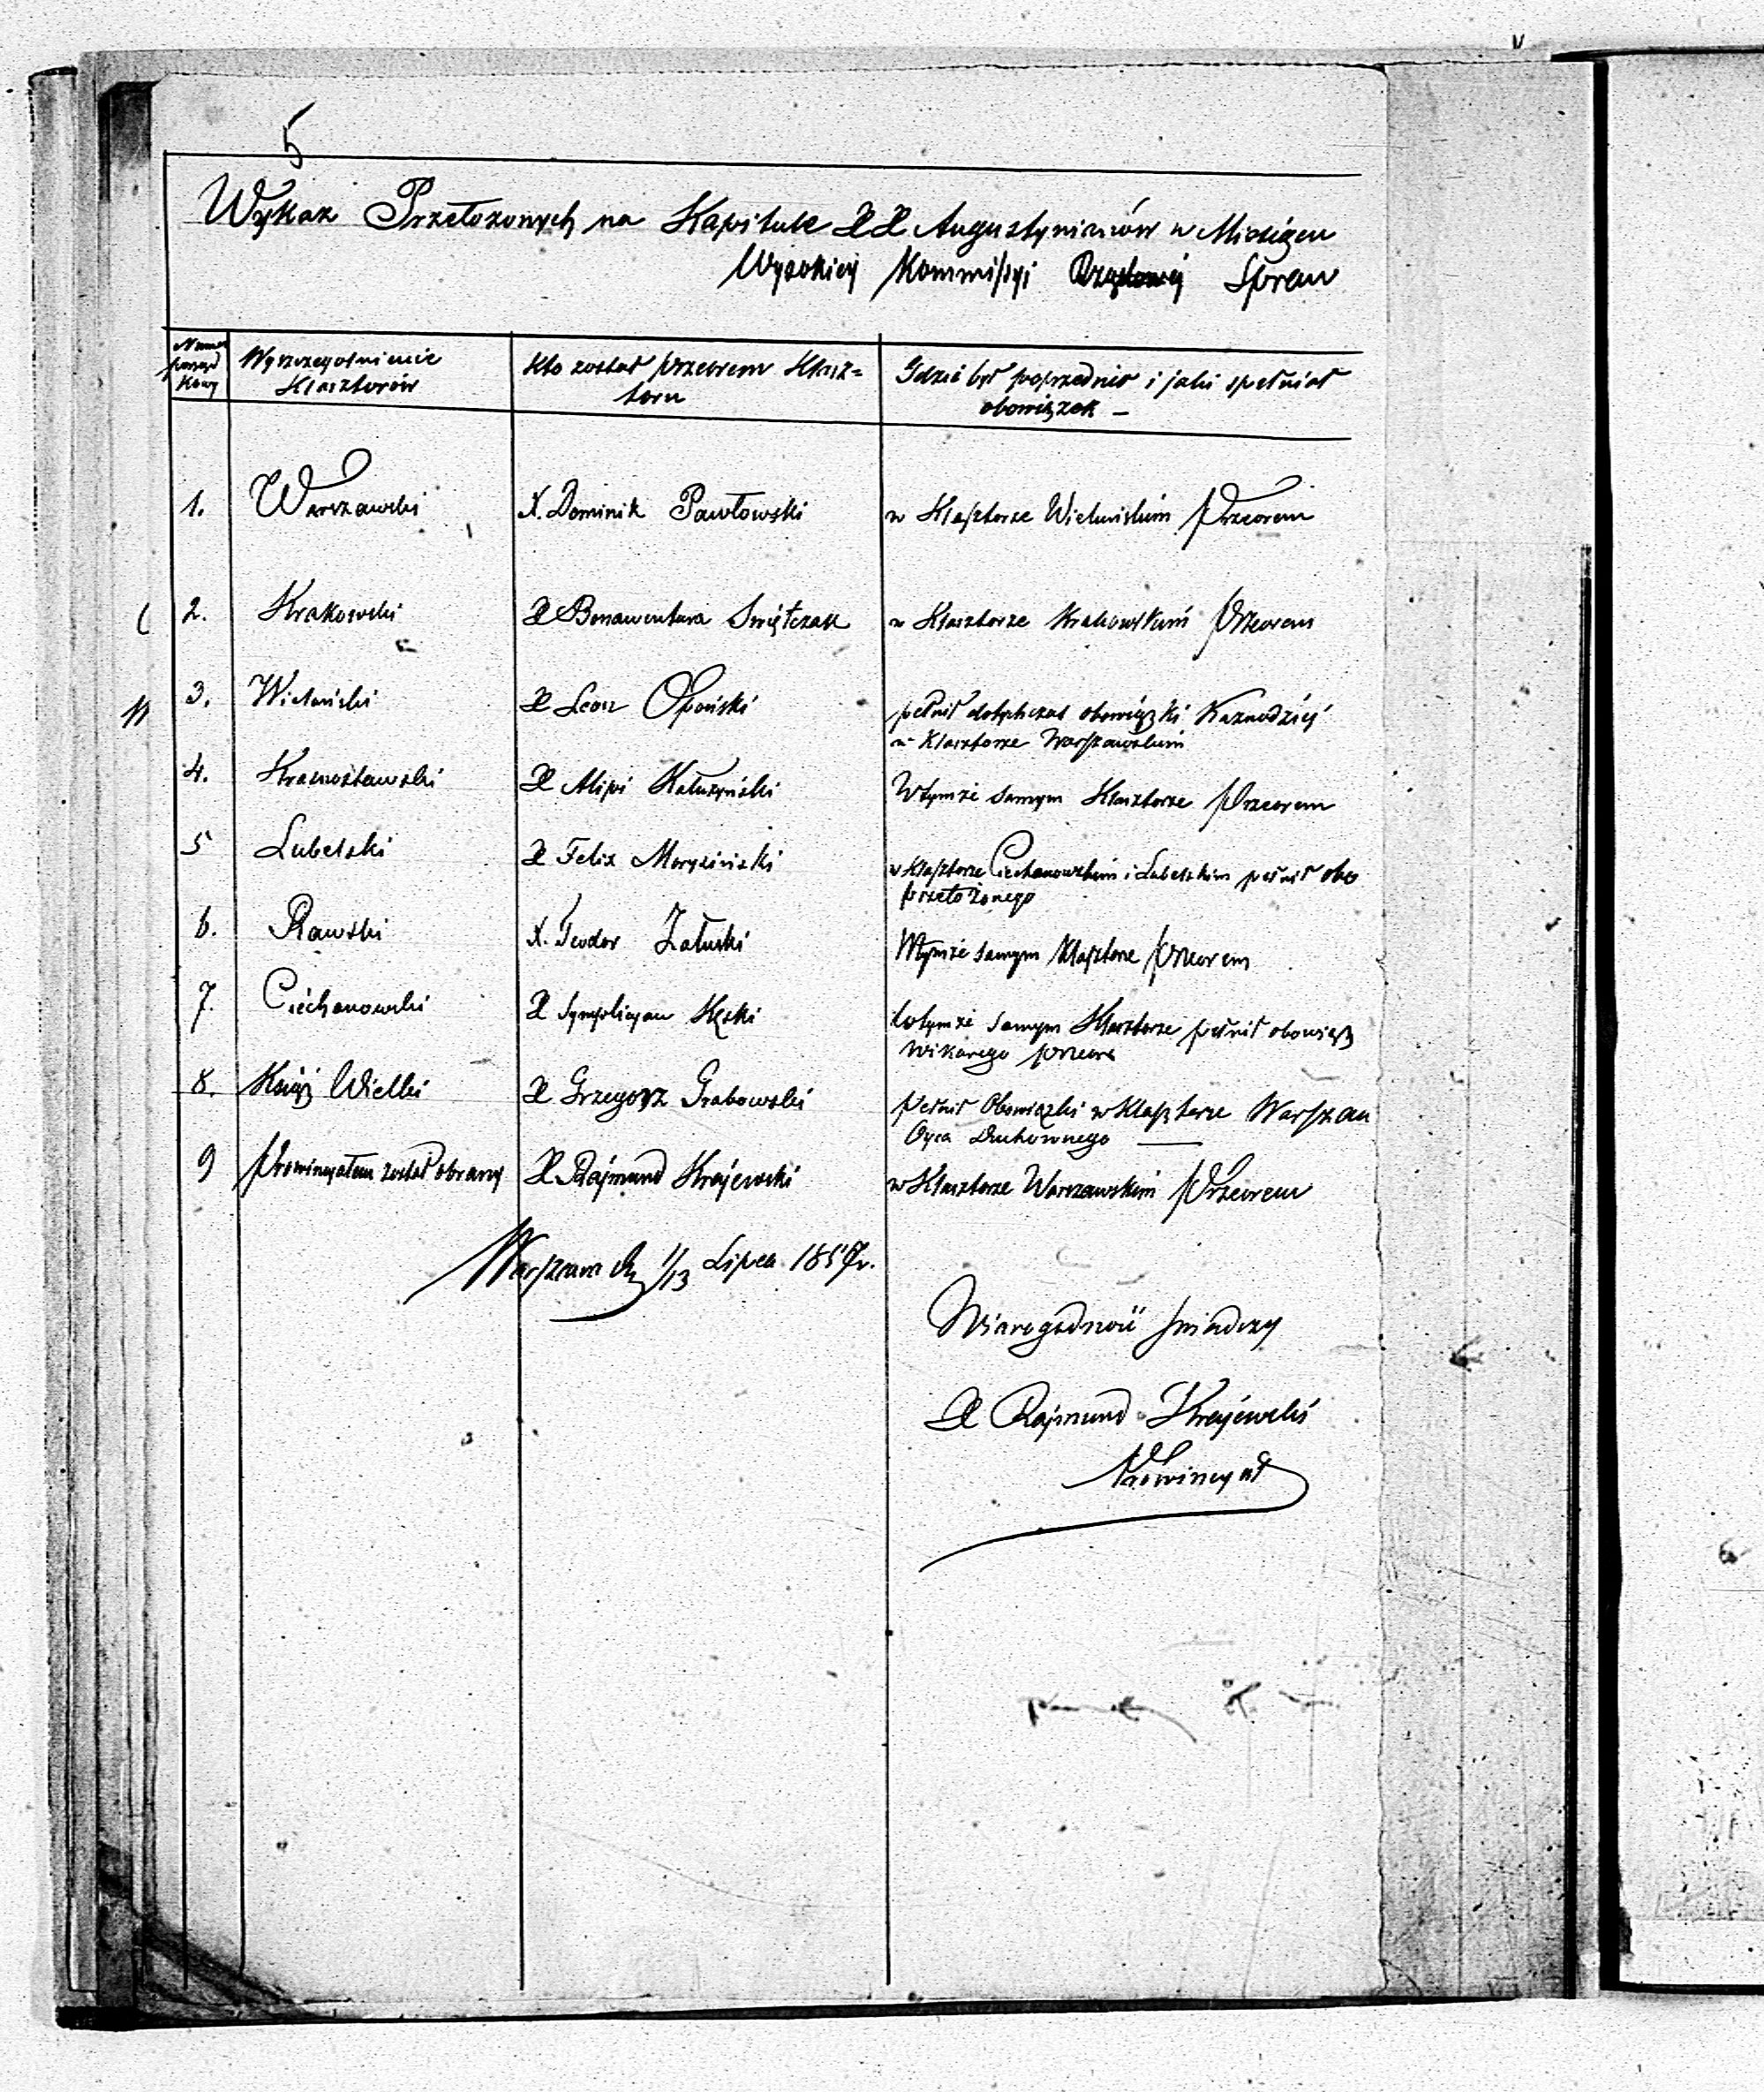 5
Wykaz Przełożonych na Kapitule XX Augustynianów w Miesiącu
Wysokiey Kommissyi Rządowej Spraw
Numer porządkowy
Wyszczegolnienie Klasztorów
Kto został przeorem Klasz=
toru
Gdzie był poprzednio i jaki spełniał
obowiązek –
1. Warszawski X. Dominik Pawłowski w Klasztorze Wieluńskim Przeorem
2. Krakowski X Bonawentura Świętczak w Klasztorze Krakowskim Przeorem
3. Wieluński X Leon Opoński pełnił dotychczas obowiązki Kaznodziej
w Klasztorze Warszawskim
4. Krasnostawski X Alipi Kałużyński W tymże samym Klasztorze Przeorem
5 Lubelski X Felix Moryziński w Klasztorze Ciechanowskim i Lubelskim pełnił obo
przełożonego
6. Rawski X. Teodor Załuski W tymże samym Klasztorze Przeorem
7. Ciechanowski X Symplicyan Kęski W tymże samym Klasztorze pełnił obowiąz
Wikarego przeora
8. Książ Wielki X Grzegorz Grabowski Pełnił Obowiązki w Klasztorze Warszaw
Oyca Duchownego —
9 Prowincyałem został obrany X Rajmund Krajewski w Klasztorze Warszawskim Przeorem
Warszawa d. 1/13 Lipca 1857 r.
Wiarogodność świadczy
X Rajmund Krajewski
Prowincyał